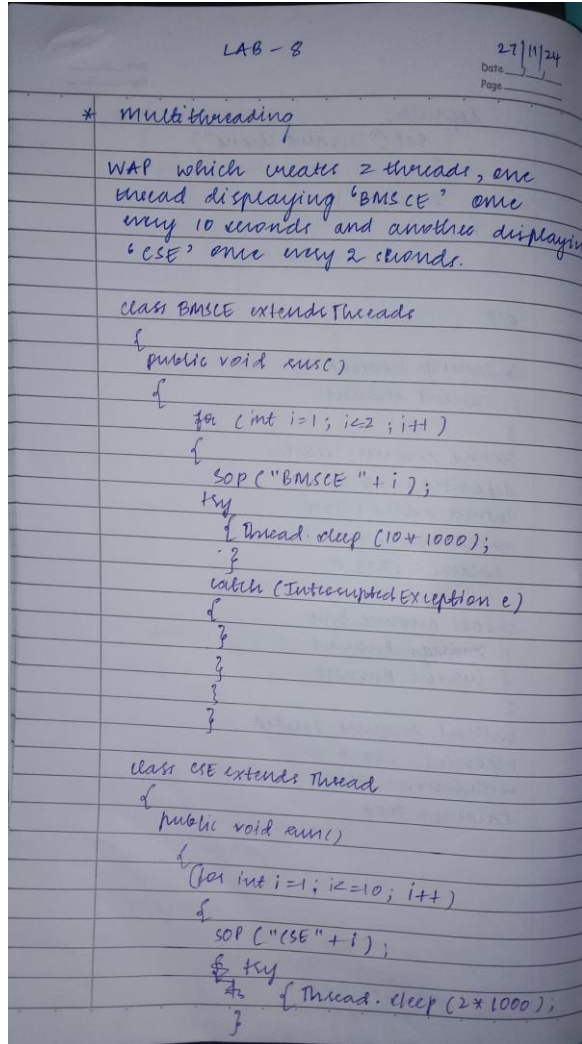 LAB - 8
27/11/24
Date
Page
* Multithreading
WAP which creates 2 threads, one
thread displaying 'BMSCE' once
every 10 seconds and another displayin
'CSE' once every 2 seconds.
class BMSCE extends Threads
{
public void run()
{
for (int i=1; i<=2; i++)
{
SOP ("BMSCE "+i);
try
{ Thread.sleep (10*1000);
}
catch (InterruptedException e)
{
}
}
}
}
class CSE extends Thread
{
public void run()
{
(for int i=1; i<=10; i++)
{
SOP ("CSE"+i);
try
{ Thread.sleep (2*1000);
}